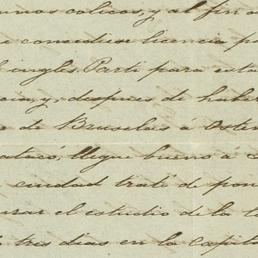 unos colicos, y al fin
considiese licencia p
ingles. Parti para esta
y, despues de haber
de Bruselas á Osten
atacó, llegue bueno a
ciudad traté de pon
el estudio de la
tres dias en la capita